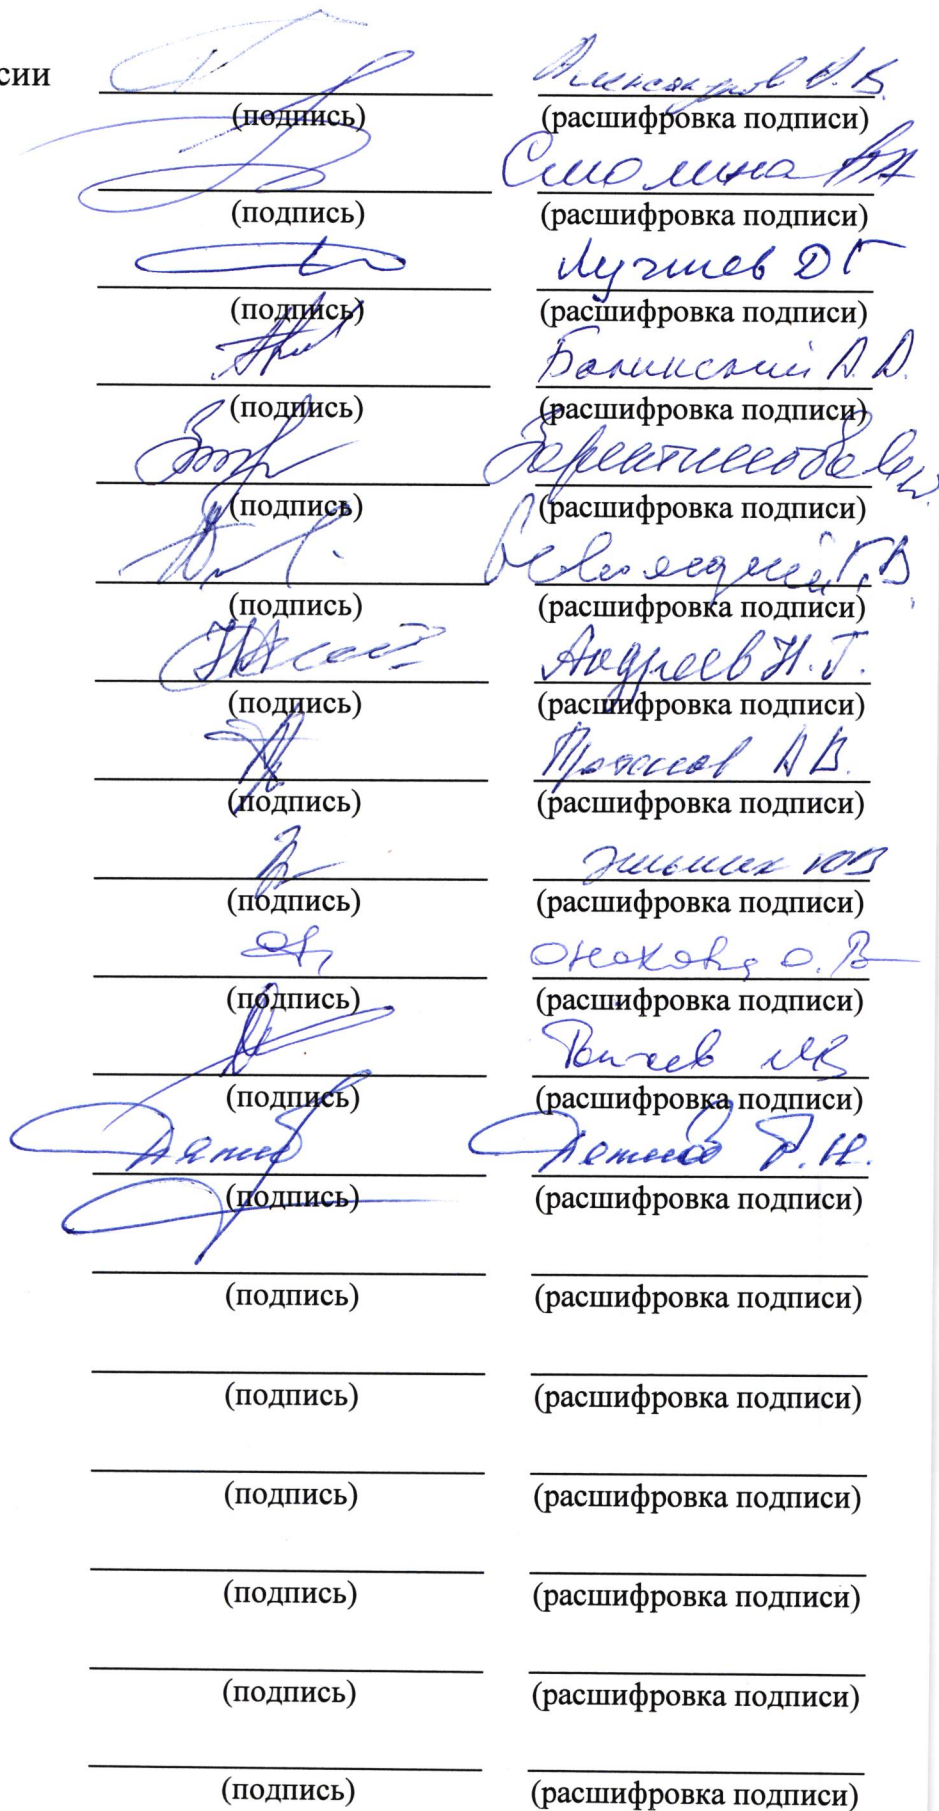 сии Александров А.В.
(подпись) (расшифровка подписи)
Смолина
(подпись) (расшифровка подписи)
Лучшев ДГ
(подпись) (расшифровка подписи)
А.А.
(подпись) (расшифровка подписи)
(подпись) (расшифровка подписи)
Г.В
(подпись) (расшифровка подписи)
Андреев Н.Г.
(подпись) (расшифровка подписи)
А.В.
(подпись) (расшифровка подписи)
ЮВ
(подпись) (расшифровка подписи)
О.В
(подпись) (расшифровка подписи)
(подпись) (расшифровка подписи)
(подпись) (расшифровка подписи)
(подпись) (расшифровка подписи)
(подпись) (расшифровка подписи)
(подпись) (расшифровка подписи)
(подпись) (расшифровка подписи)
(подпись) (расшифровка подписи)
(подпись) (расшифровка подписи)